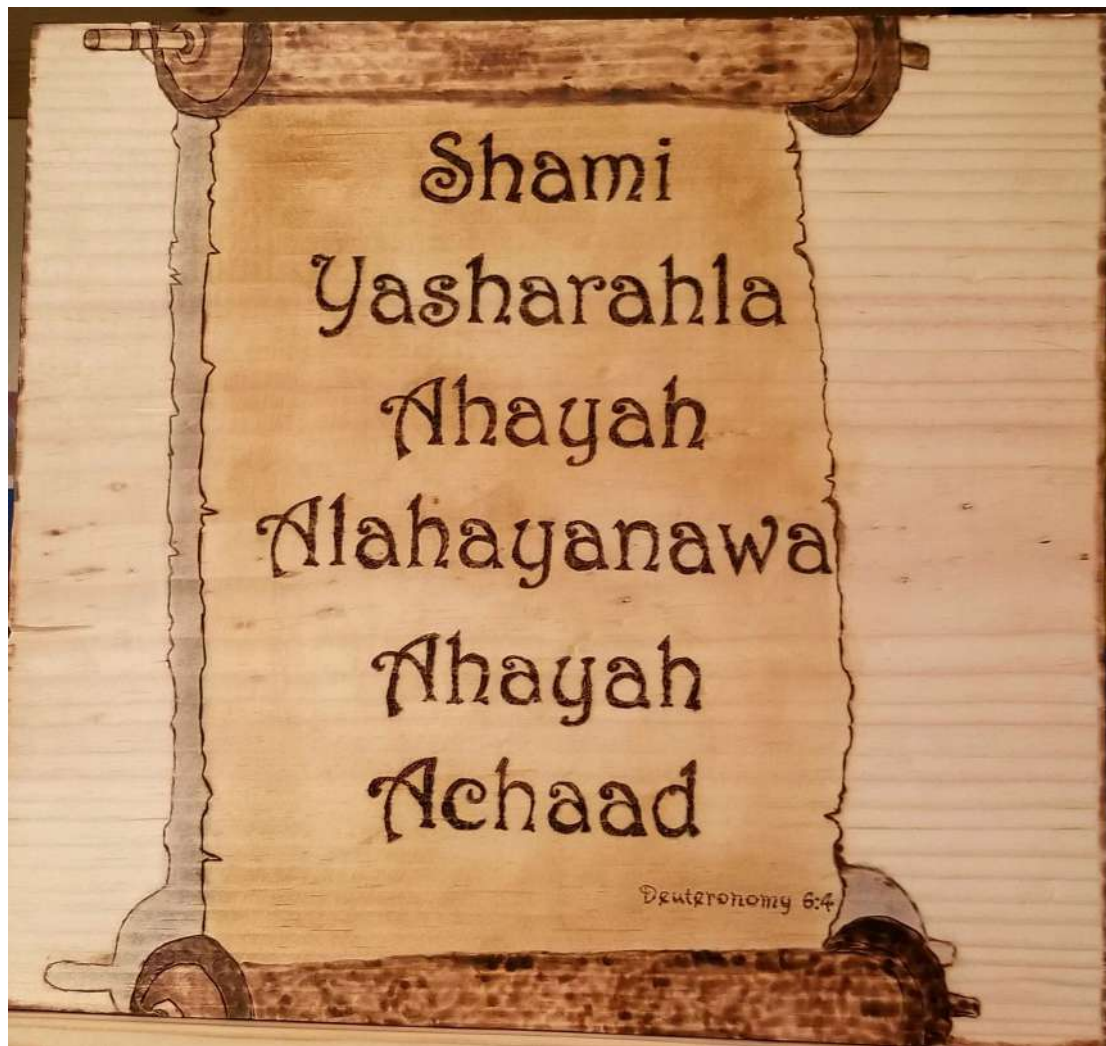 Shami
Yasharahla
Ahayah
Alahayanawa
Ahayah
Achaad
Deuteronomy 6:4